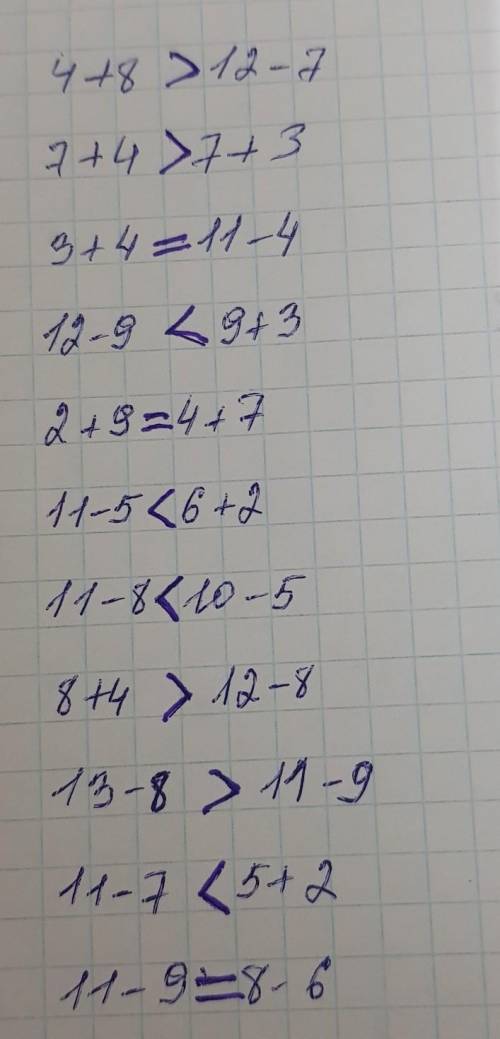 4+8 > 12-7
7+4 > 7+3
3+4 = 11-4
12-9 < 9+3
2+9 = 4+7
11-5 < 6+2
11-8 < 10-5
8+4 > 12-8
13-8 > 11-9
11-7 < 5+2
11-9 = 8-6